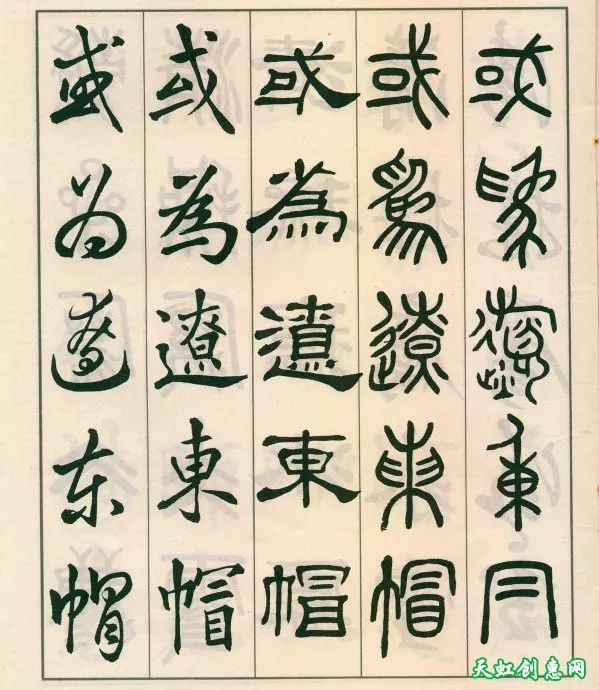 或為遼東冃
或為遼東帽
或為遼東帽
或為遼東帽
或為遼東帽
天虹创惠网